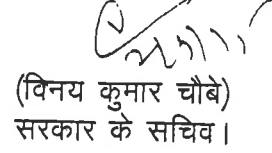 (विनय कुमार चौबे)
सरकार के सचिव।